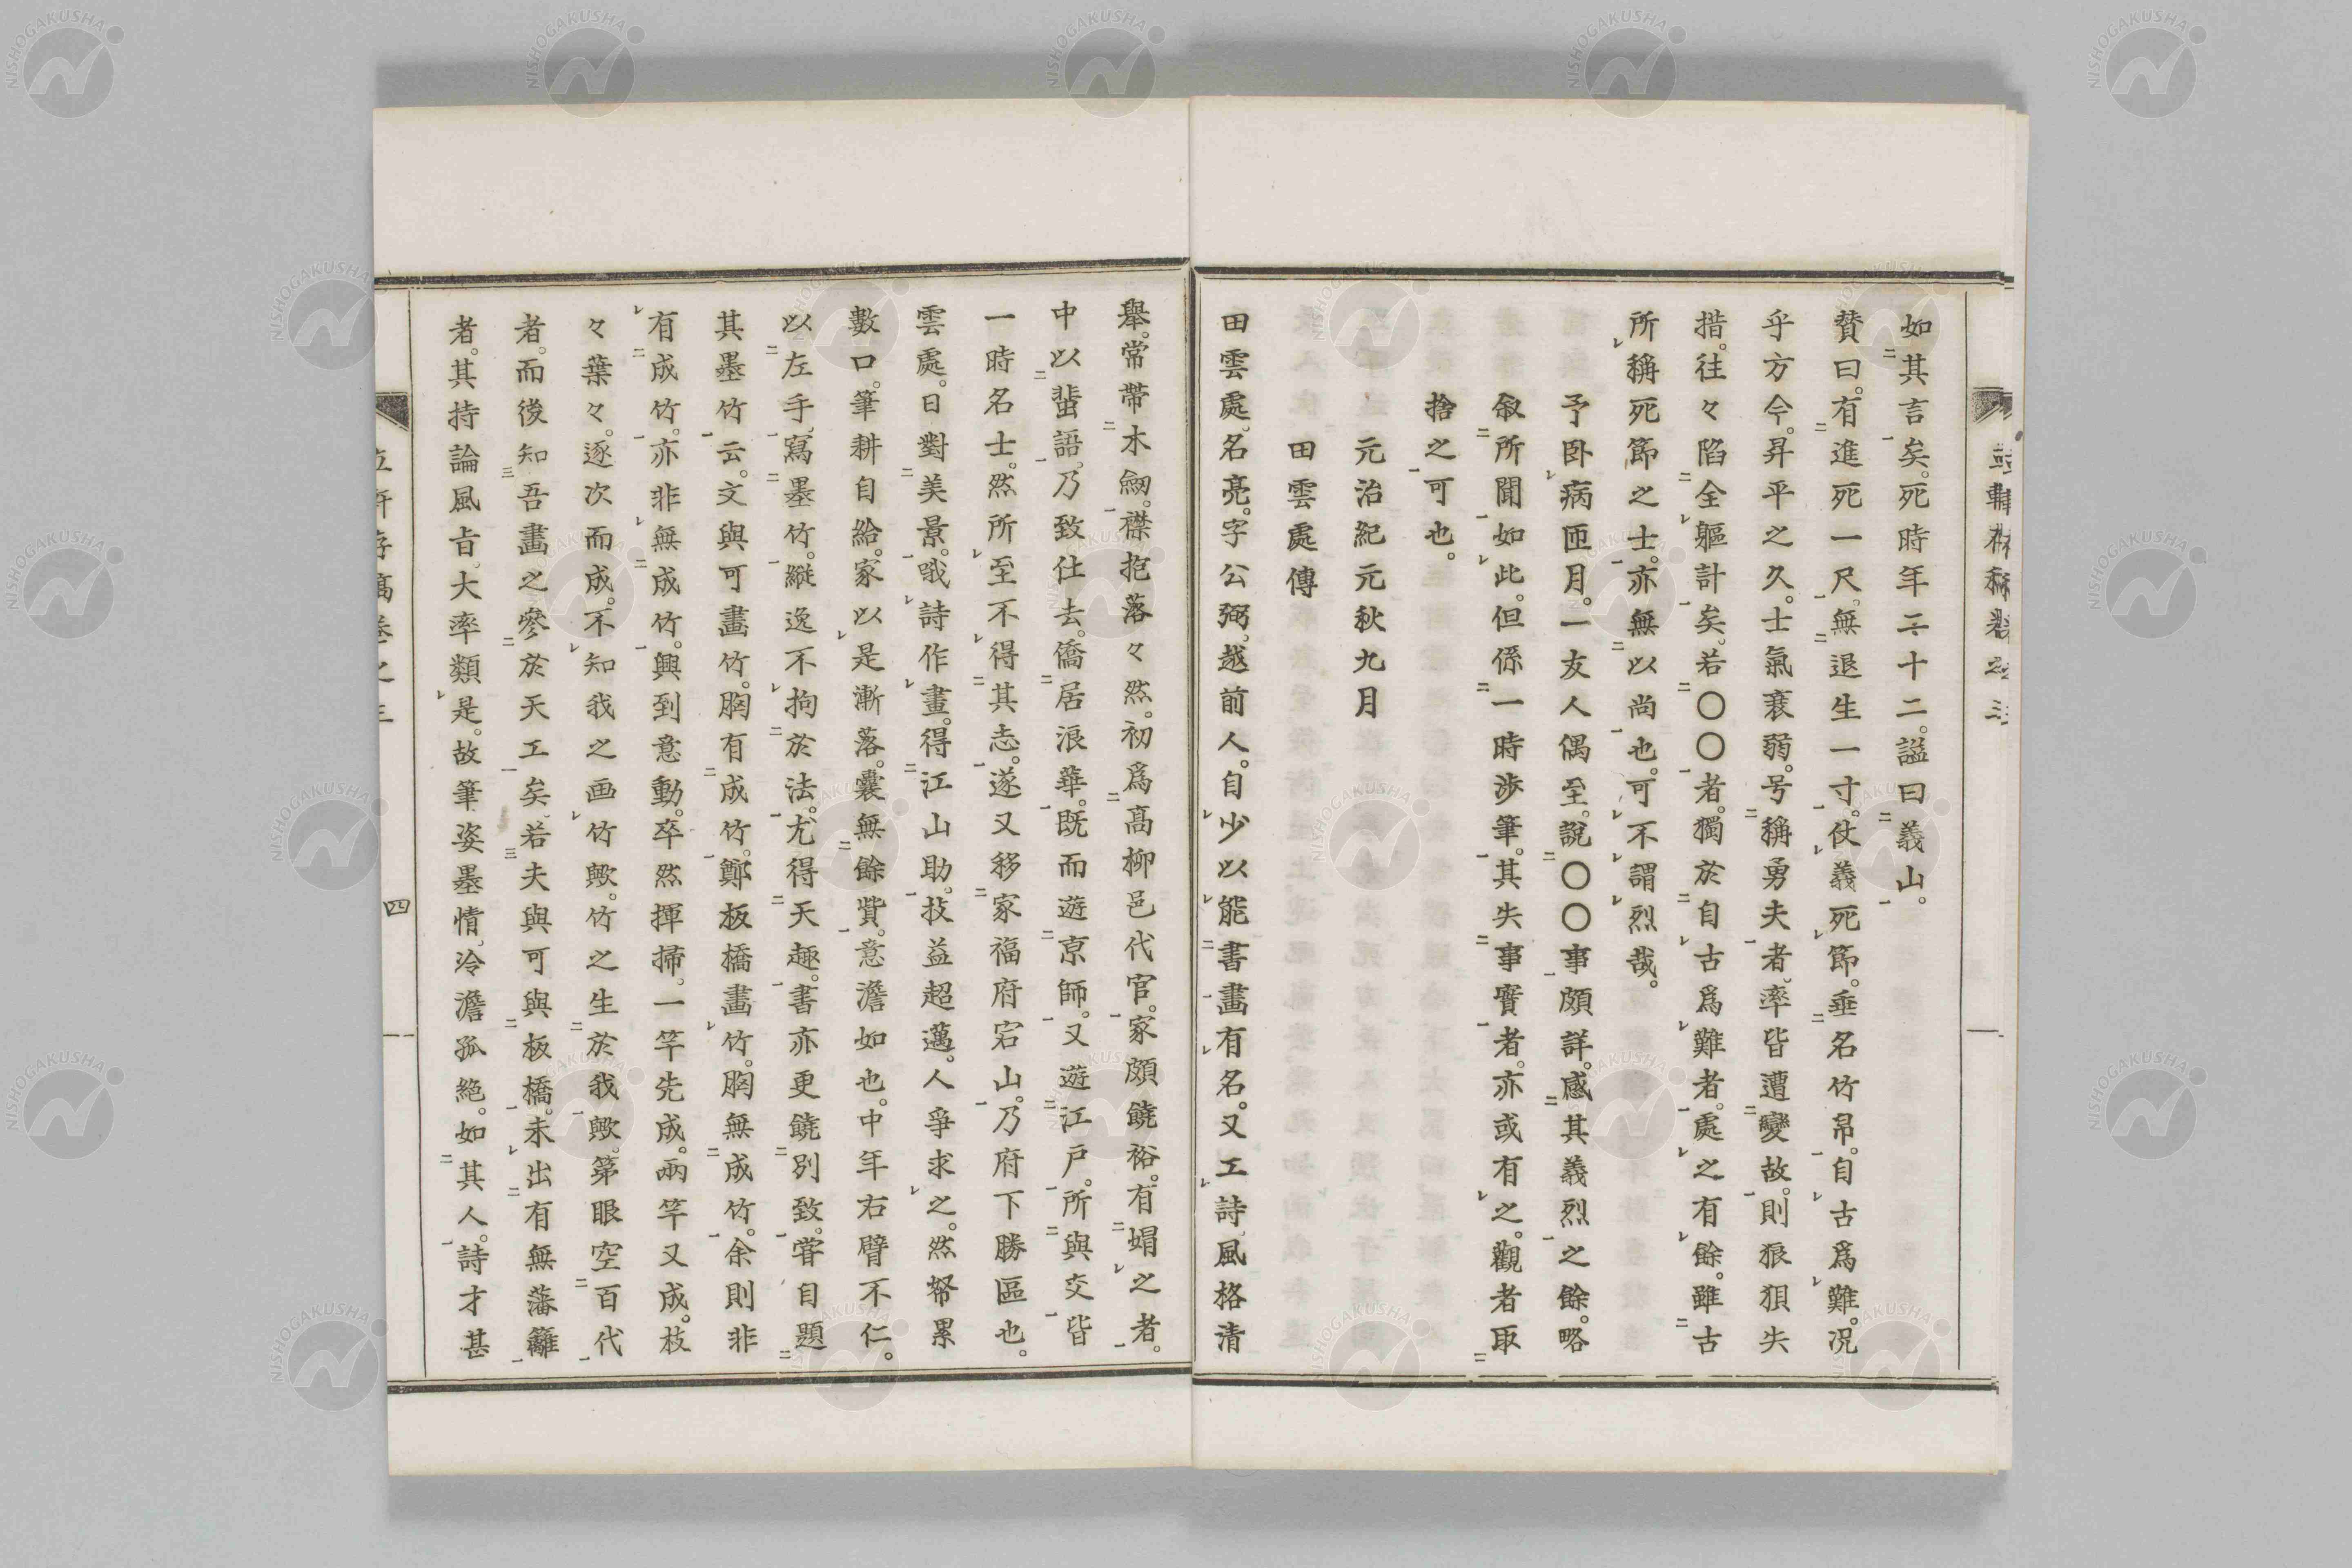 如其言矣。死時年二十二。謚曰義山。
賛曰。有進死一尺。無退生一寸。仗義死節。垂名竹帛。自古爲難。况
乎方今。昇平之久。士氣衰弱。号稱勇夫者。率皆遭變故。則狼狽失
措。往々陷全軀計矣。若〇〇者。獨於自古爲難者。處之有餘。雖古
所稱死節之士。亦無以尚也。可不謂烈哉。
予卧病匝月。一友人偶至。說〇〇事頗詳。感其義烈之餘。略
叙所聞如此。但係一時涉筆。其失事實者。亦或有之。觀者取
捨之可也。
元治紀元秋九月
田雲處傳
田雲處。名亮。字公弼。越前人。自少以能書畫有名。又工詩。風格清
舉。常帶木劒。襟抱落々然。初爲高柳邑代官。家頗饒裕。有媢之者。
中以蜚語。乃致仕去。僑居浪華。既而遊京師。又遊江戸。所與交皆
一時名士。然所至不得其志。遂又移家福府宕山。乃府下勝區也。
雲處。日對美景。哦詩作畫。得江山助。技益超邁。人爭求之。然帑累
數口。筆耕自給。家以是漸落。囊無餘貲。意澹如也。中年右臂不仁。
以左手。寫墨竹。縦逸不拘於法。尤得天趣。書亦更饒別致。甞自題
其墨竹云。文與可畫竹。胸有成竹。鄭板橋畫竹。胸無成竹。余則非
有成竹。亦非無成竹。興到意動。卒然揮掃。一竿先成。兩竿又成。枝
々葉々。逐次而成。不知我之画竹歟。竹之生於我歟。第眼空百代
者。而後知吾畫之參於天工矣。若夫與可與板橋。未出有無藩籬
者。其持論風㫖。大率類是。故筆姿墨情。冷澹孤絶。如其人。詩才甚
四
NISHOGAKUSHA